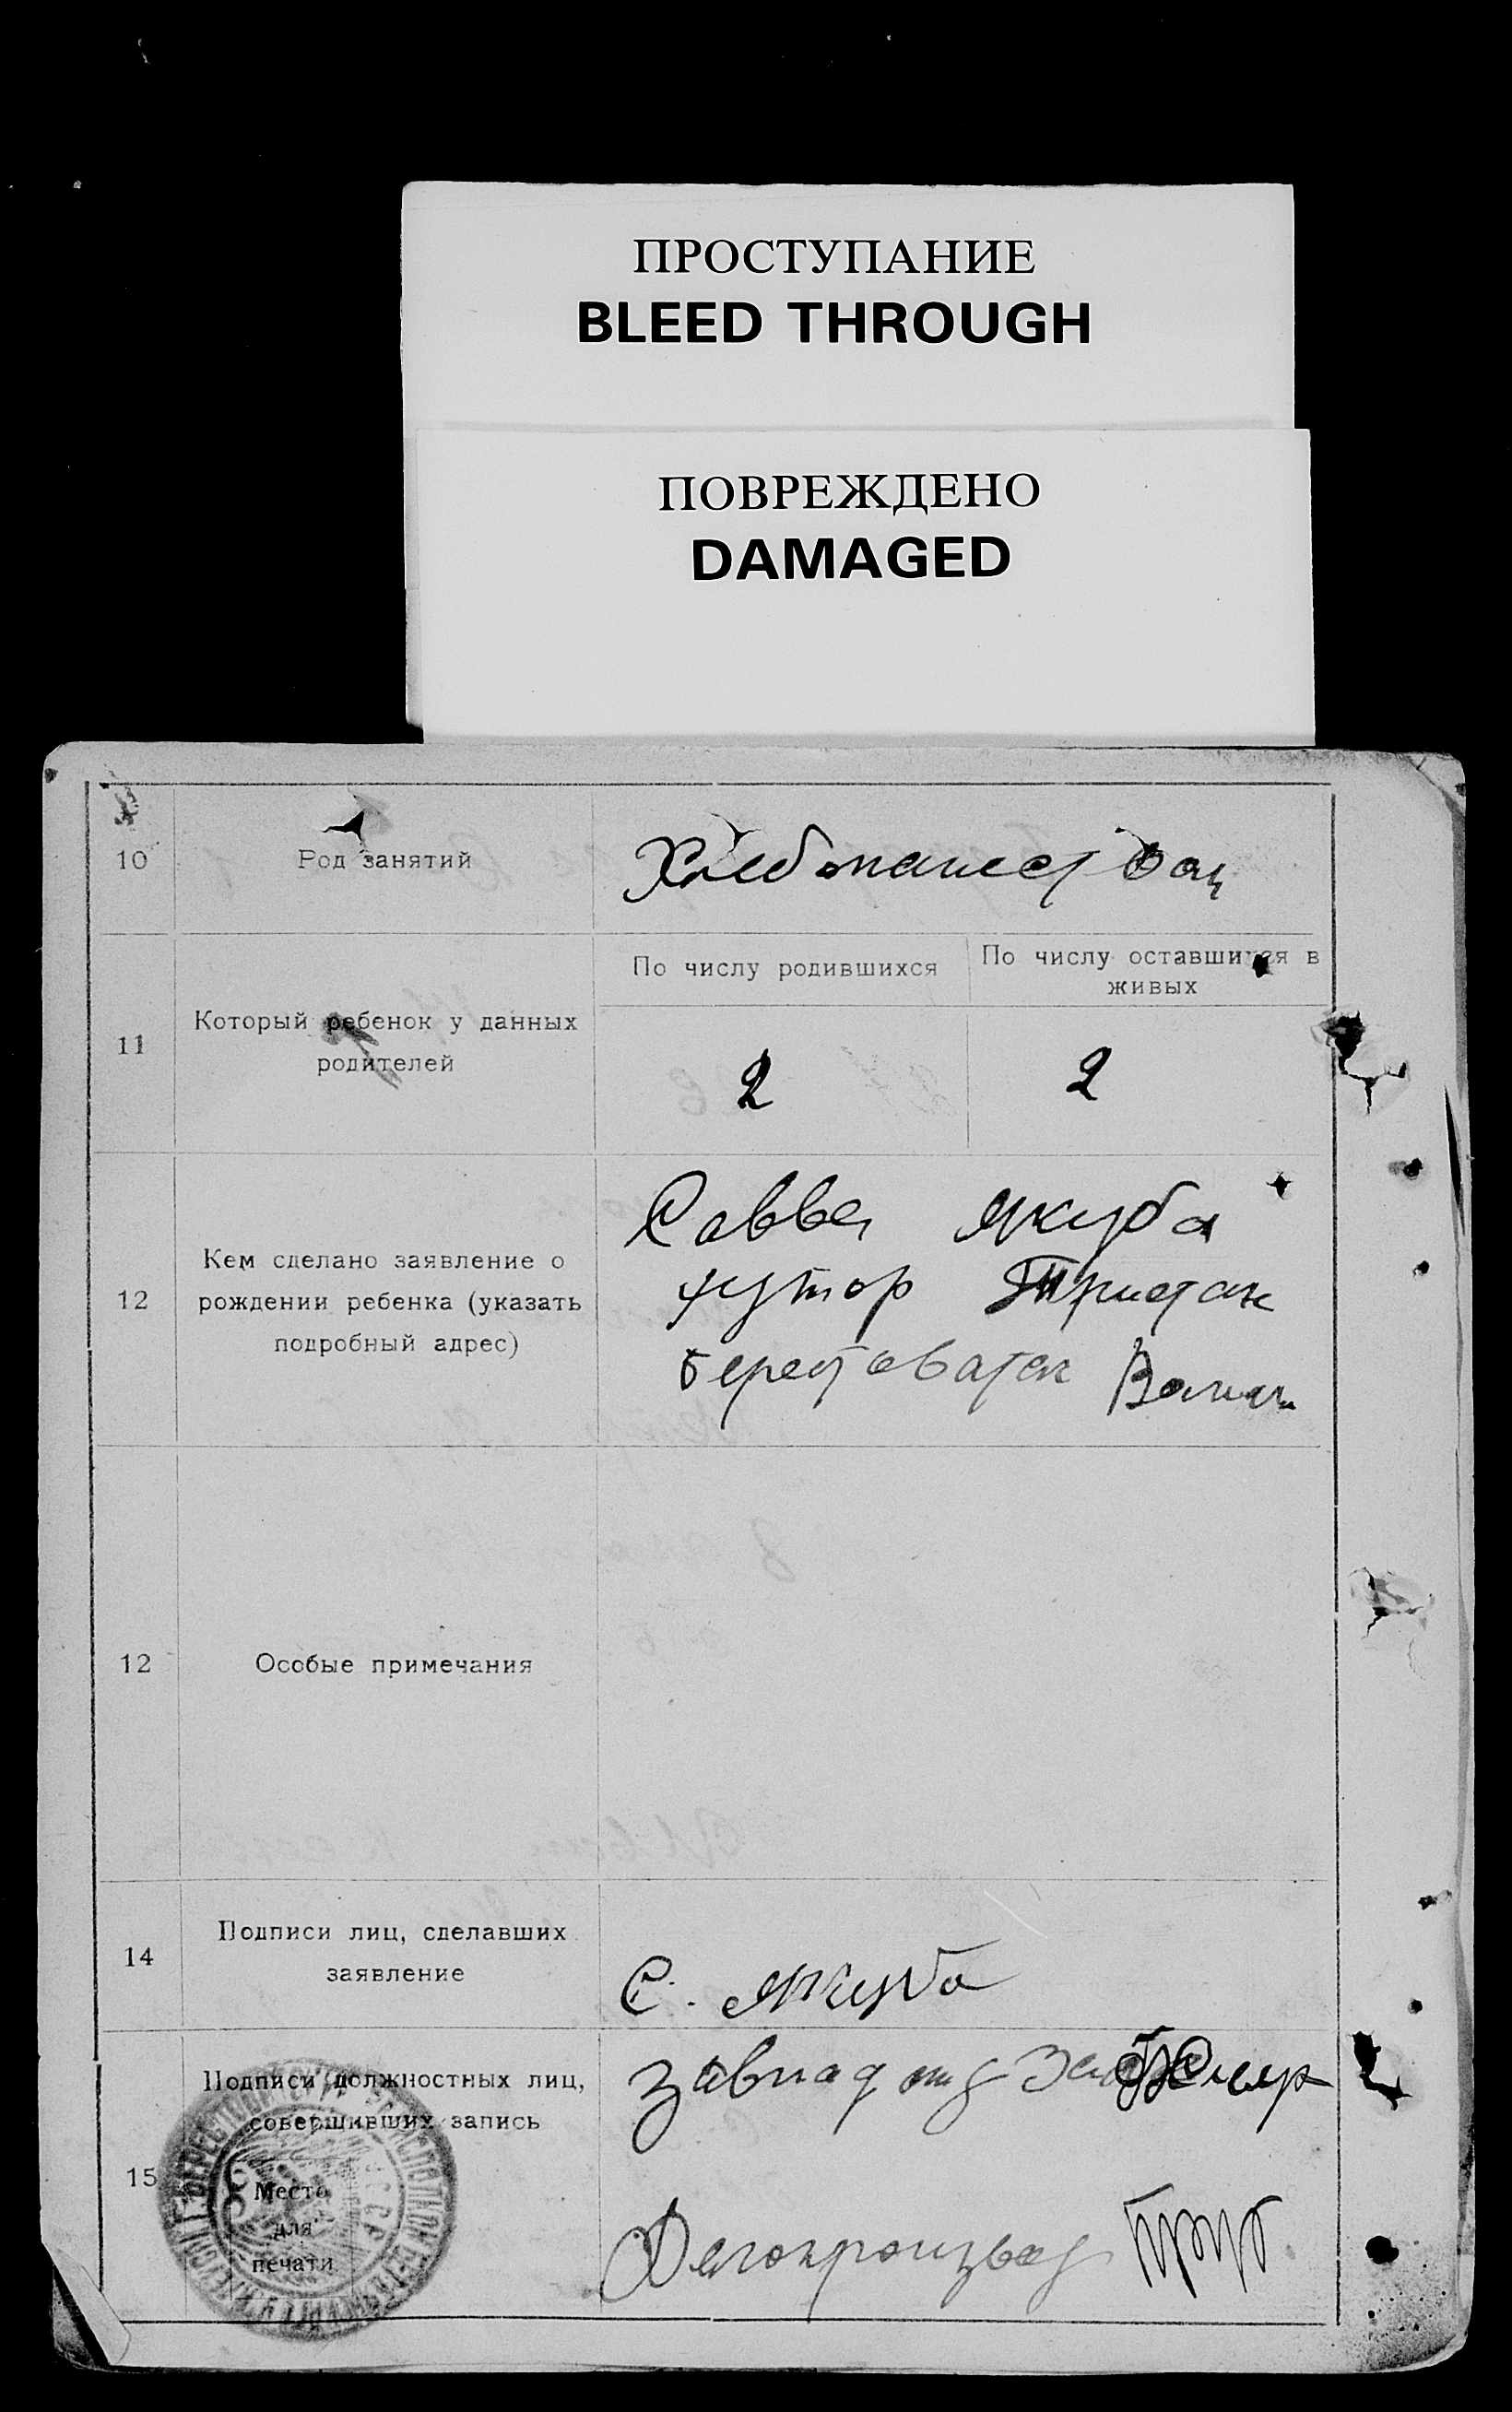 ПРОСТУПАНИЕ
BLEED THROUGH
ПОВРЕЖДЕНО
DAMAGED
10
Род занятий
11
Который ребенок у данных
родителей
По числу родившихся
По числу оставшихся в
живых
2
2
12
Кем сделано заявление о
рождении ребенка (указать
подробный адрес)
Савва Якуба
хутор
12
Особые примечания
14
Подписи лиц, сделавших
заявление
С. Якуба
15
Подписи должностных лиц,
совершивших запись
Место
для
печати
Делопроизвод